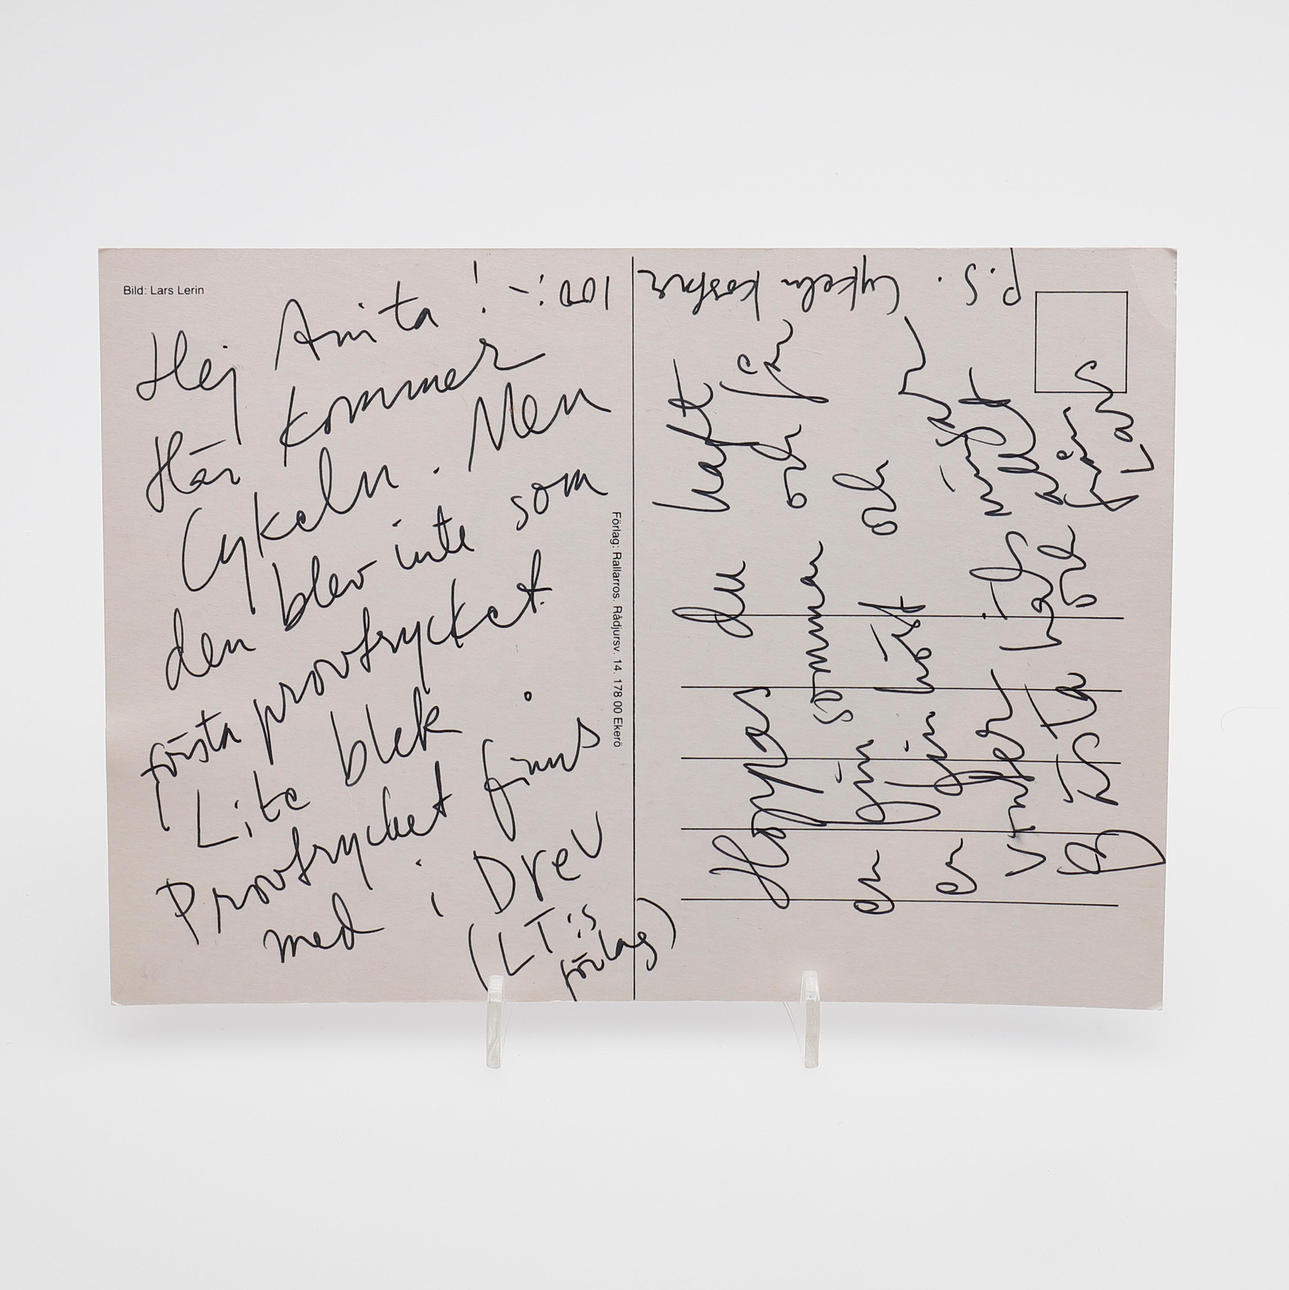 Bild: Lars Lerin
Hej Anita!
Här kommer
Cykeln. Men
den blev inte som
första provtrycket.
Lite blek.
Provtrycket finns
med i Drev
(LT:s
förlag)
Förlag: Rallarros. Rådjursv. 14. 178 00 Ekerö
Hoppas du haft
en fin sommar och får
en fin höst och
vinter
Bästa
från
Lars
P.S. Cykeln kostar
100:-